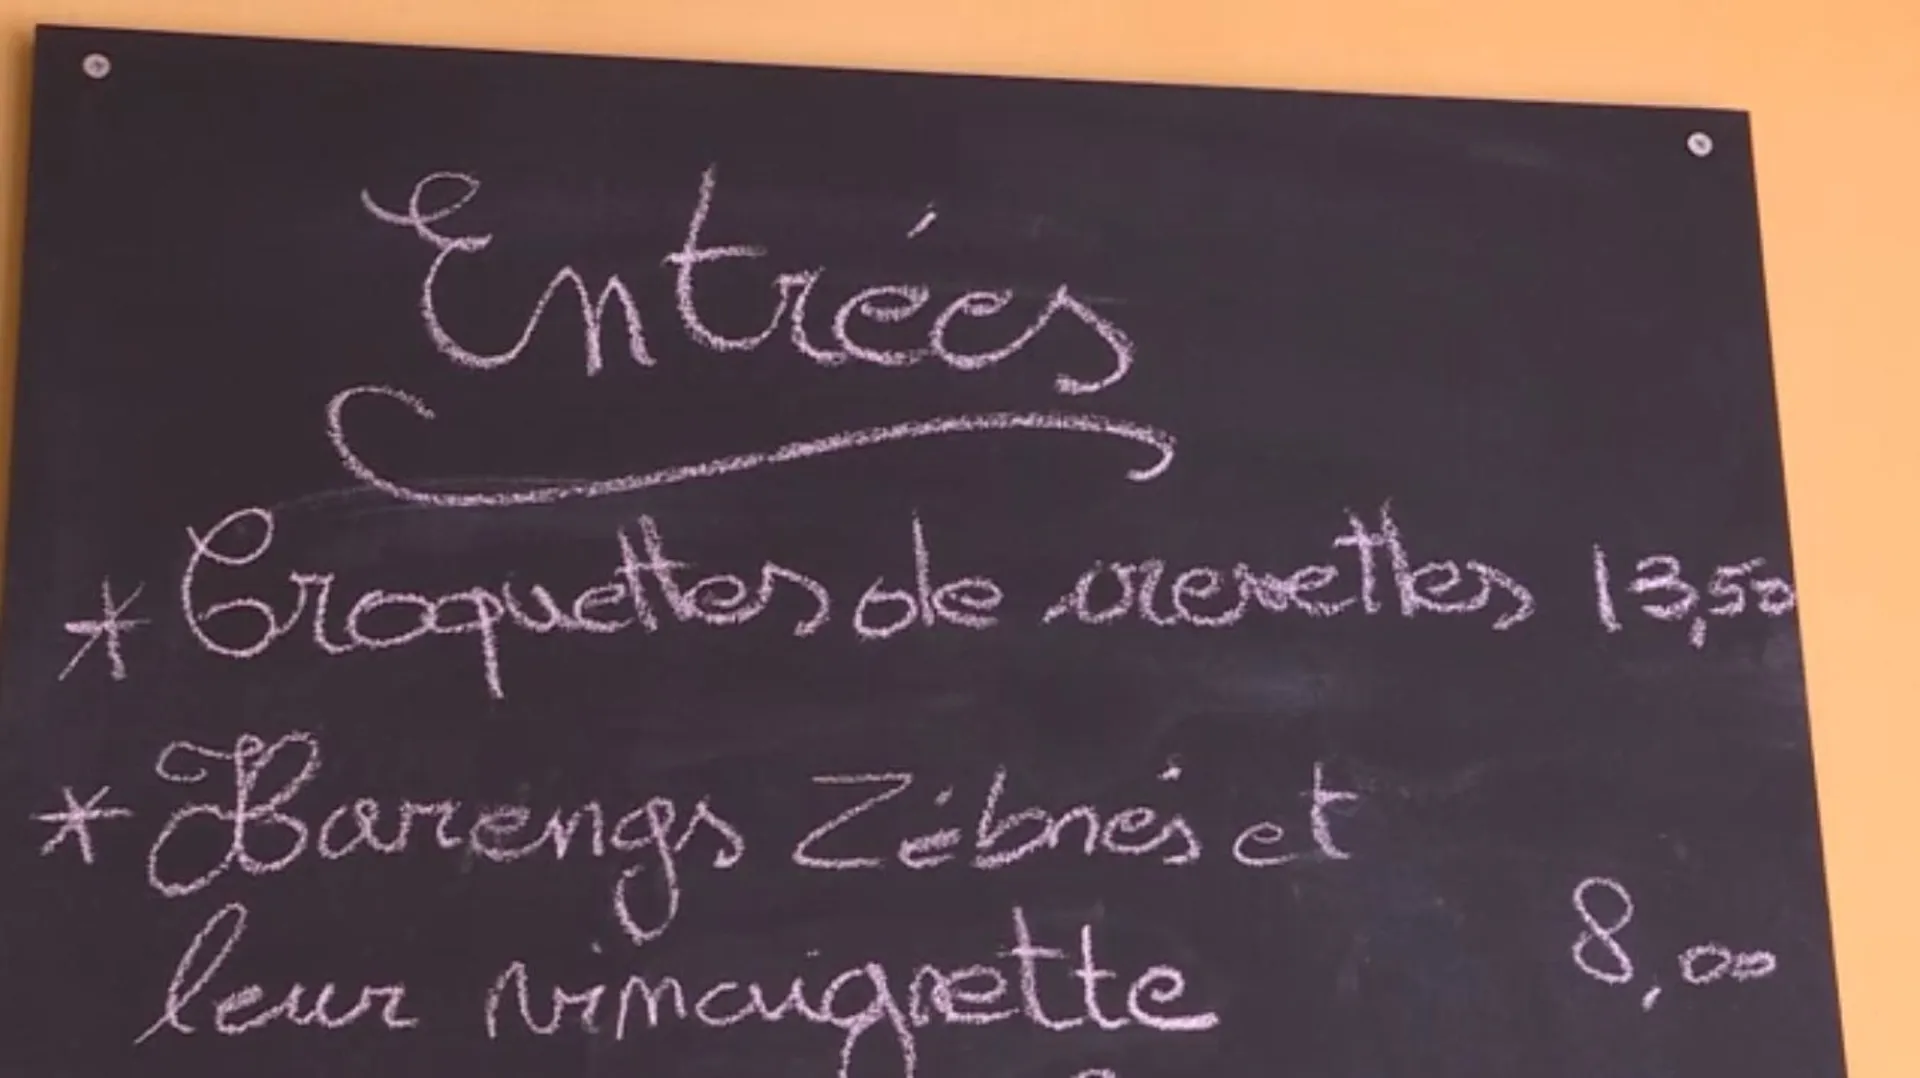 Entrées
* Croquettes de crevettes 13,50
* Harengs Zébrés et
leur vinaigrette 8,00